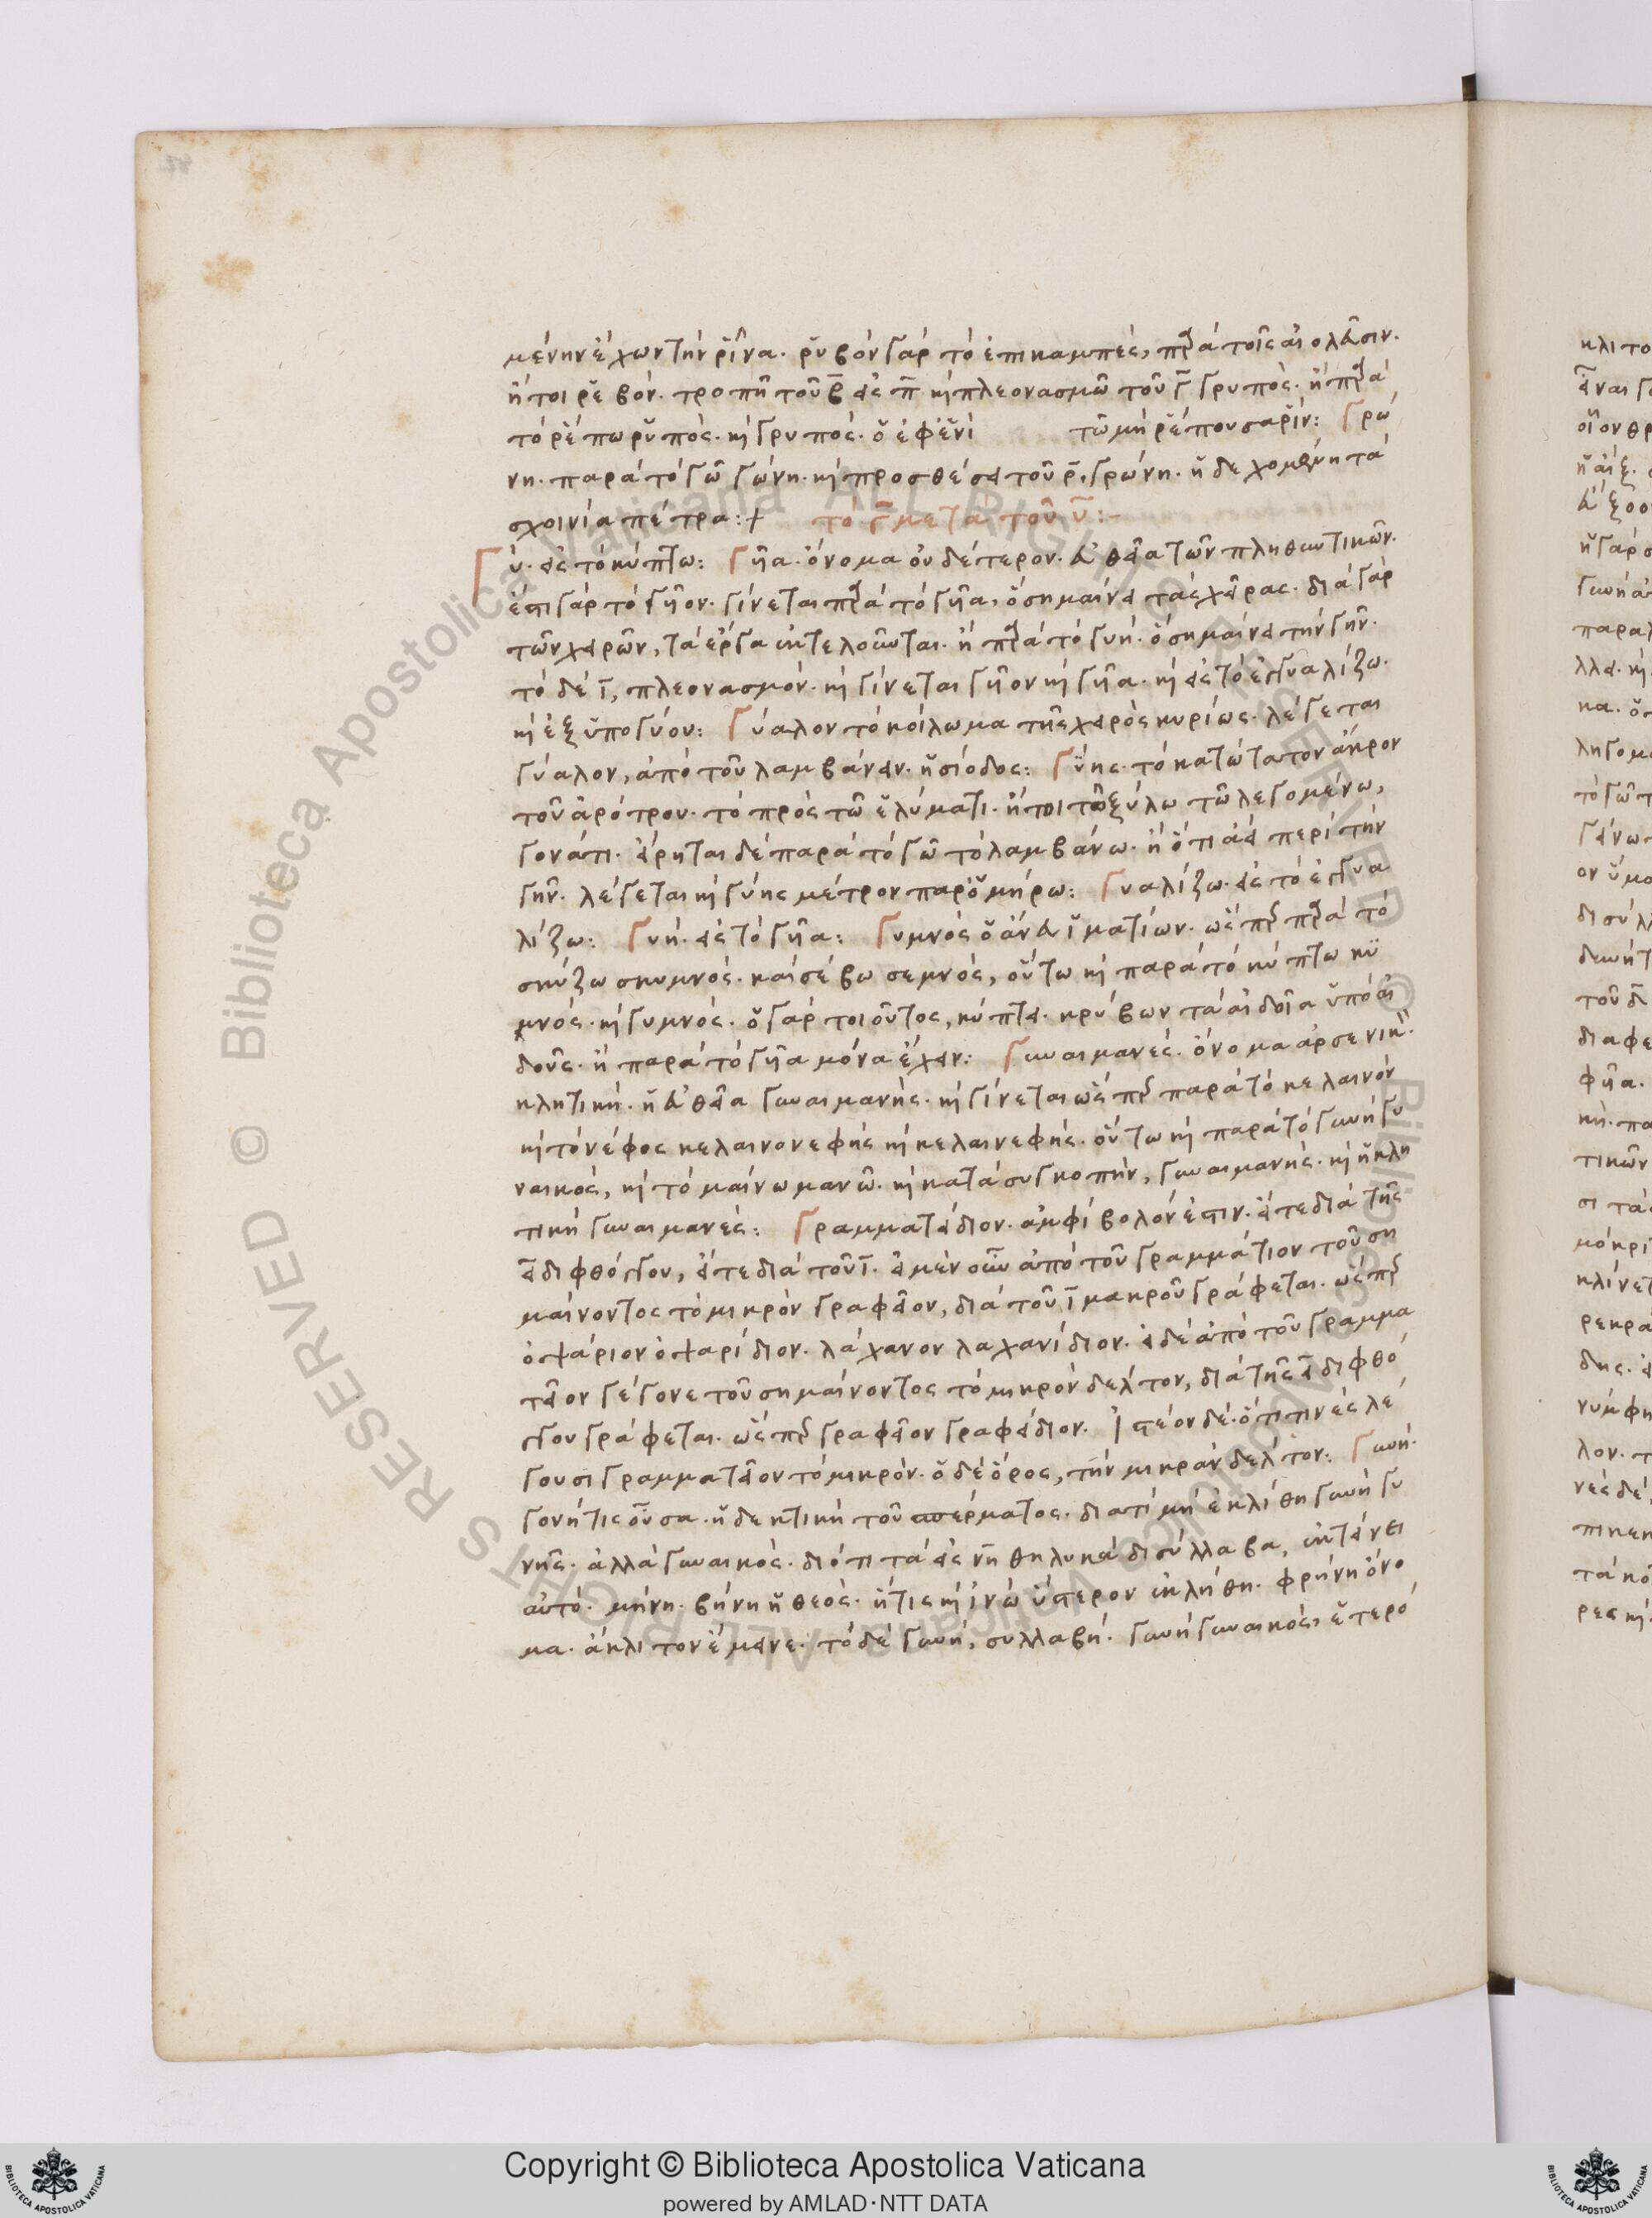 μένην ἔχων τὴν ῥῖνα. ῥυβὸν γὰρ τὸ ἐπικαμπὲς, παρὰ τοῖς αἰολεῦσιν.
ἤτοι ῥεβόν. τροπῆ τοῦ β εἰς π κὶ πλεονασμῶ τοῦ γ γρυπὸς. ἢ παρὰ
τὸ ῥέπω ῥυπὸς. κὶ γρυπὸς. ὁ ἐφ ἑνὶ τῶ μὴ ῥέπουσα ῥίν: Γρώ
νη. παρὰ τὸ γῶ γώνη. κὶ προσθέσει τοῦ ρ, γρώνη. ἡ δεχομένη τὰ
σχοινία πέτρα:+ τὸ γ μετὰ τοῦ υ:
Γύ. εἰς τὸ κύπτω: Γῆα. ὄνομα οὐδέτερον. εὐθεῖα τῶν πληθυντικῶν.
ἔστι γὰρ τὸ γῆον. γίνεται παρὰ τὸ γῆα, ὃ σημαίνει τὰς χεῖρας. διὰ γὰρ
τῶν χειρῶν, τὰ ἔργα ἐκτελοῦνται. ἢ παρὰ τὸ γυή. ὃ σημαίνει τὴν γῆν.
τὸ δὲ ι, πλεονασμόν. κὶ γίνεται γῆον κὶ γῆα. κὶ εἰς τὸ ἐγγυαλίζω.
κὶ ἐξ ὑπογύου: Γύαλον τὸ κοίλωμα τῆς χειρὸς κυρίως. λέγεται
γύαλον, ἀπὸ τοῦ λαμβάνειν. ἡσίοδος: Γύης. τὸ κατώτατον ἄκρον
τοῦ ἀρότρου. τὸ πρὸς τῶ ἐλύματι. ἤτοι τῶ ξύλω τῶ λεγομένω,
γονάτι. εἴρηται δὲ παρὰ τὸ γῶ τὸ λαμβάνω. ἢ ὅτι ἀεὶ περὶ τὴν
γῆν. λέγεται κὶ γύης μέτρον παρ ὁμήρω: Γυαλίζω. εἰς τὸ ἐγγυα
λίζω: Γυή. εἰς τὸ γῆα: Γυμνὸς ὁ ἄνευ ἱματίων. ὥσπερ παρὰ τὸ
σκύζω σκυμνός. καὶ σέβω σεμνὸς, οὕτω κὶ παρὰ τὸ κύπτω κυ
μνός. κὶ γυμνός. ὁ γὰρ τοιοῦτος, κύπτει. κρύβων τὰ αἰδοῖα ὑπὸ αἰ
δοῦς. ἢ παρὰ τὸ γῆα μόνα ἔχειν: Γυναιμανές. ὄνομα ἀρσενικῆ.
κλητική. ἡ εὐθεῖα γυναιμανής. κὶ γίνεται ὥσπερ παρὰ τὸ κελαινὸν
κὶ τὸ νέφος κελαινονεφὴς κὶ κελαινεφής. οὕτω κὶ παρὰ τὸ γυνὴ γυ
ναικὸς, κὶ τὸ μαίνω μανῶ. κὶ κατὰ συγκοπὴν, γυναιμανής. κὶ ἡ κλη
τικὴ γυναιμανές: Γραμματείδιον. ἀμφίβολόν ἐστιν. εἴτε διὰ τῆς
ει διφθόγγου, εἴτε διὰ τοῦ ι. εἰ μὲν οὖν ἀπὸ τοῦ γραμμάτιον τοῦ ση
μαίνοντος τὸ μικρὸν γραφεῖον, διὰ τοῦ ι μακροῦ γράφεται. ὥσπερ
ὀψάριον ὀψαρίδιον. λάχανον λαχανίδιον. εἰ δὲ ἀπὸ τοῦ γραμμα
τεῖον γέγονε τοῦ σημαίνοντος τὸ μικρὸν δελτον, διὰ τῆς ει διφθό
γγου γράφεται. ὥσπερ γραφεῖον γραφείδιον. Ἰστέον δὲ. ὅτι τινὲς λέ
γουσι γραμματεῖον τὸ μικρόν. ὁ δὲ ὅρος, τὴν μικρὰν δελτον: Γυνή.
γονή τις οὖσα. ἡ δεκτικὴ τοῦ σπέρματος. διατί μὴ ἐκλίθη γυνὴ γυ
νῆς. ἀλλὰ γυναικός. διότι τὰ εἰς νη θηλυκὰ δισύλλαβα, ἐκτείνει
αὐτό. μήνη. βήνη ἡ θεὸς. ἥτις κὶ ἰνὼ ὕστερον ἐκλήθη. φρήνη ὄνο
μα. ἄκλιτον ἔμεινε. τὸ δὲ γυνὴ, συλλαβή. γυνὴ γυναικὸς, ἑτερό